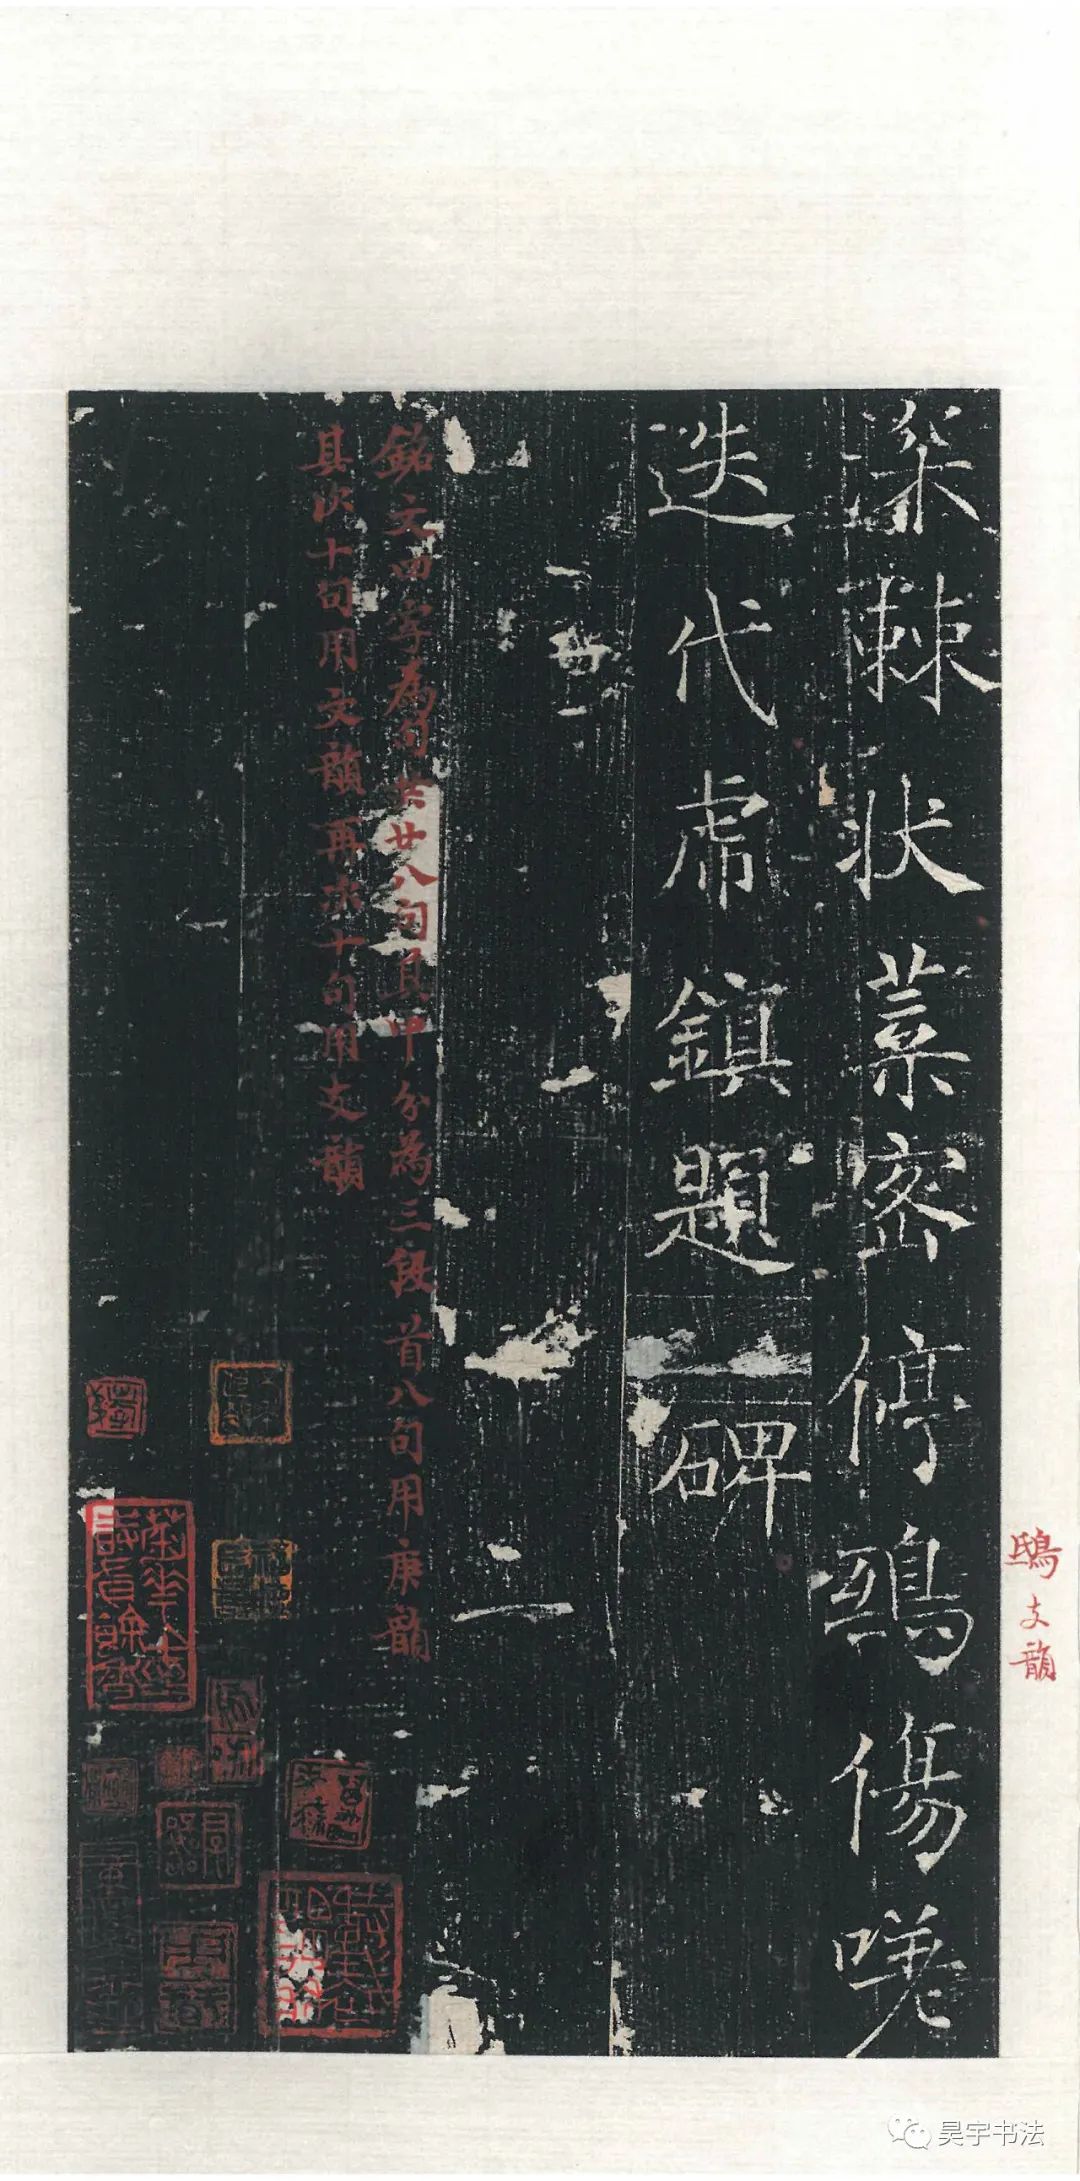 深棘状葉密停鵄傷嗟
迭代虚鎮題碑
二
鴟支韻
銘文四字為句共廿八句其中分為三段首八句用庚韻
其次十句用文韻再次十句用支韻
昊宇书法